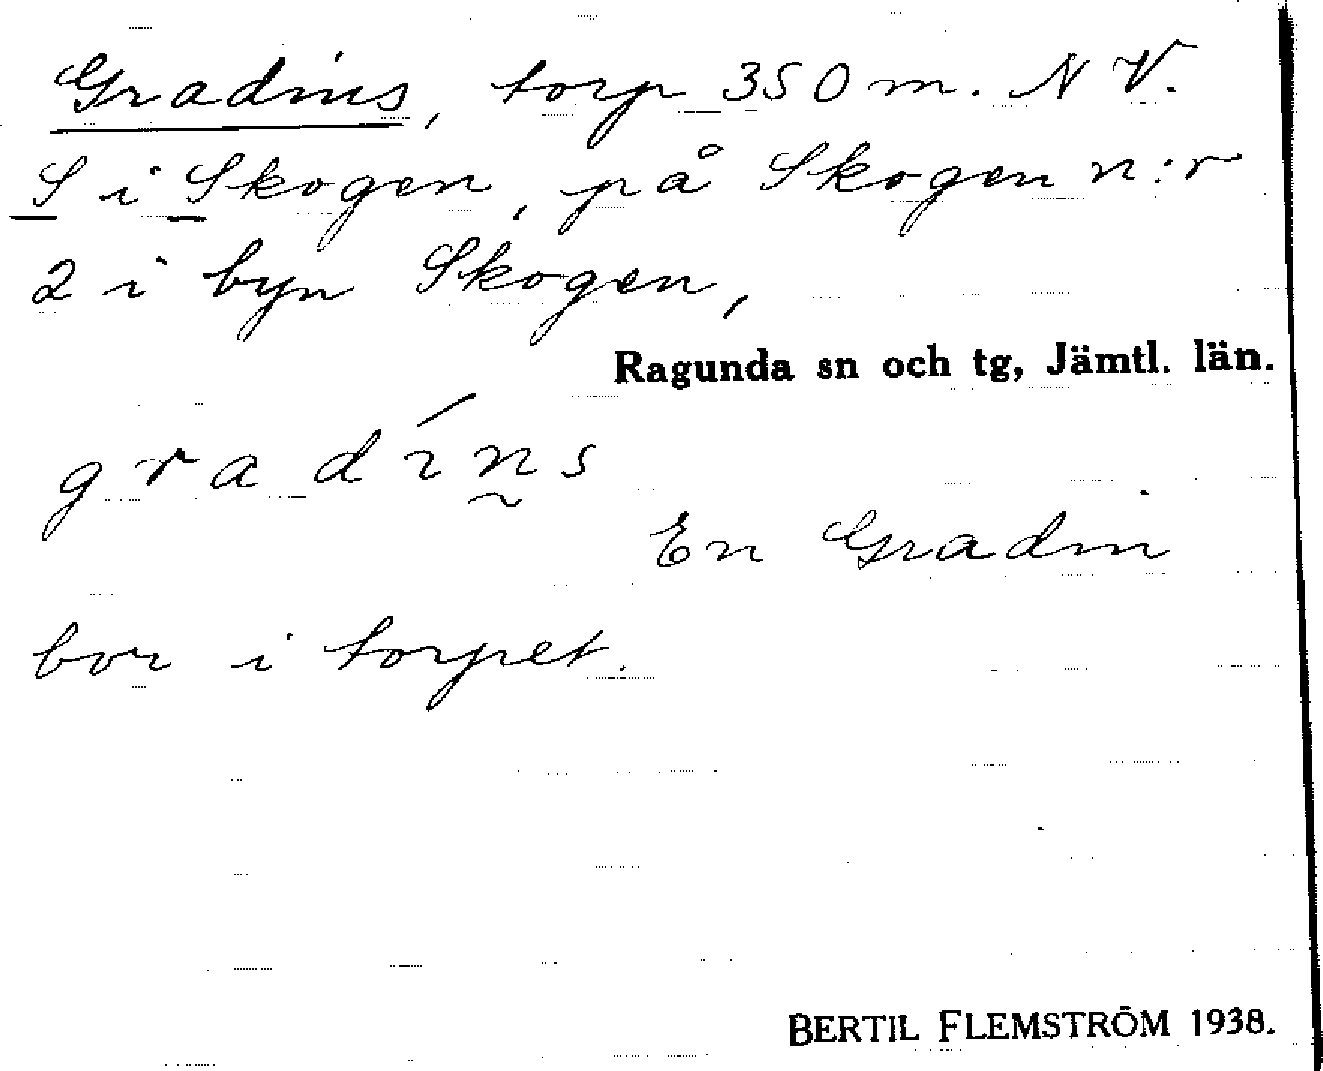 Gradins, torp 350 m. N V.
S i Skogen, på Skogen n:r
2 i byn Skogen,
Ragunda sn och tg, Jämtl. län.
gradíns
En Gradin
bor i torpet.
BERTIL FLEMSTRÖM 1938.